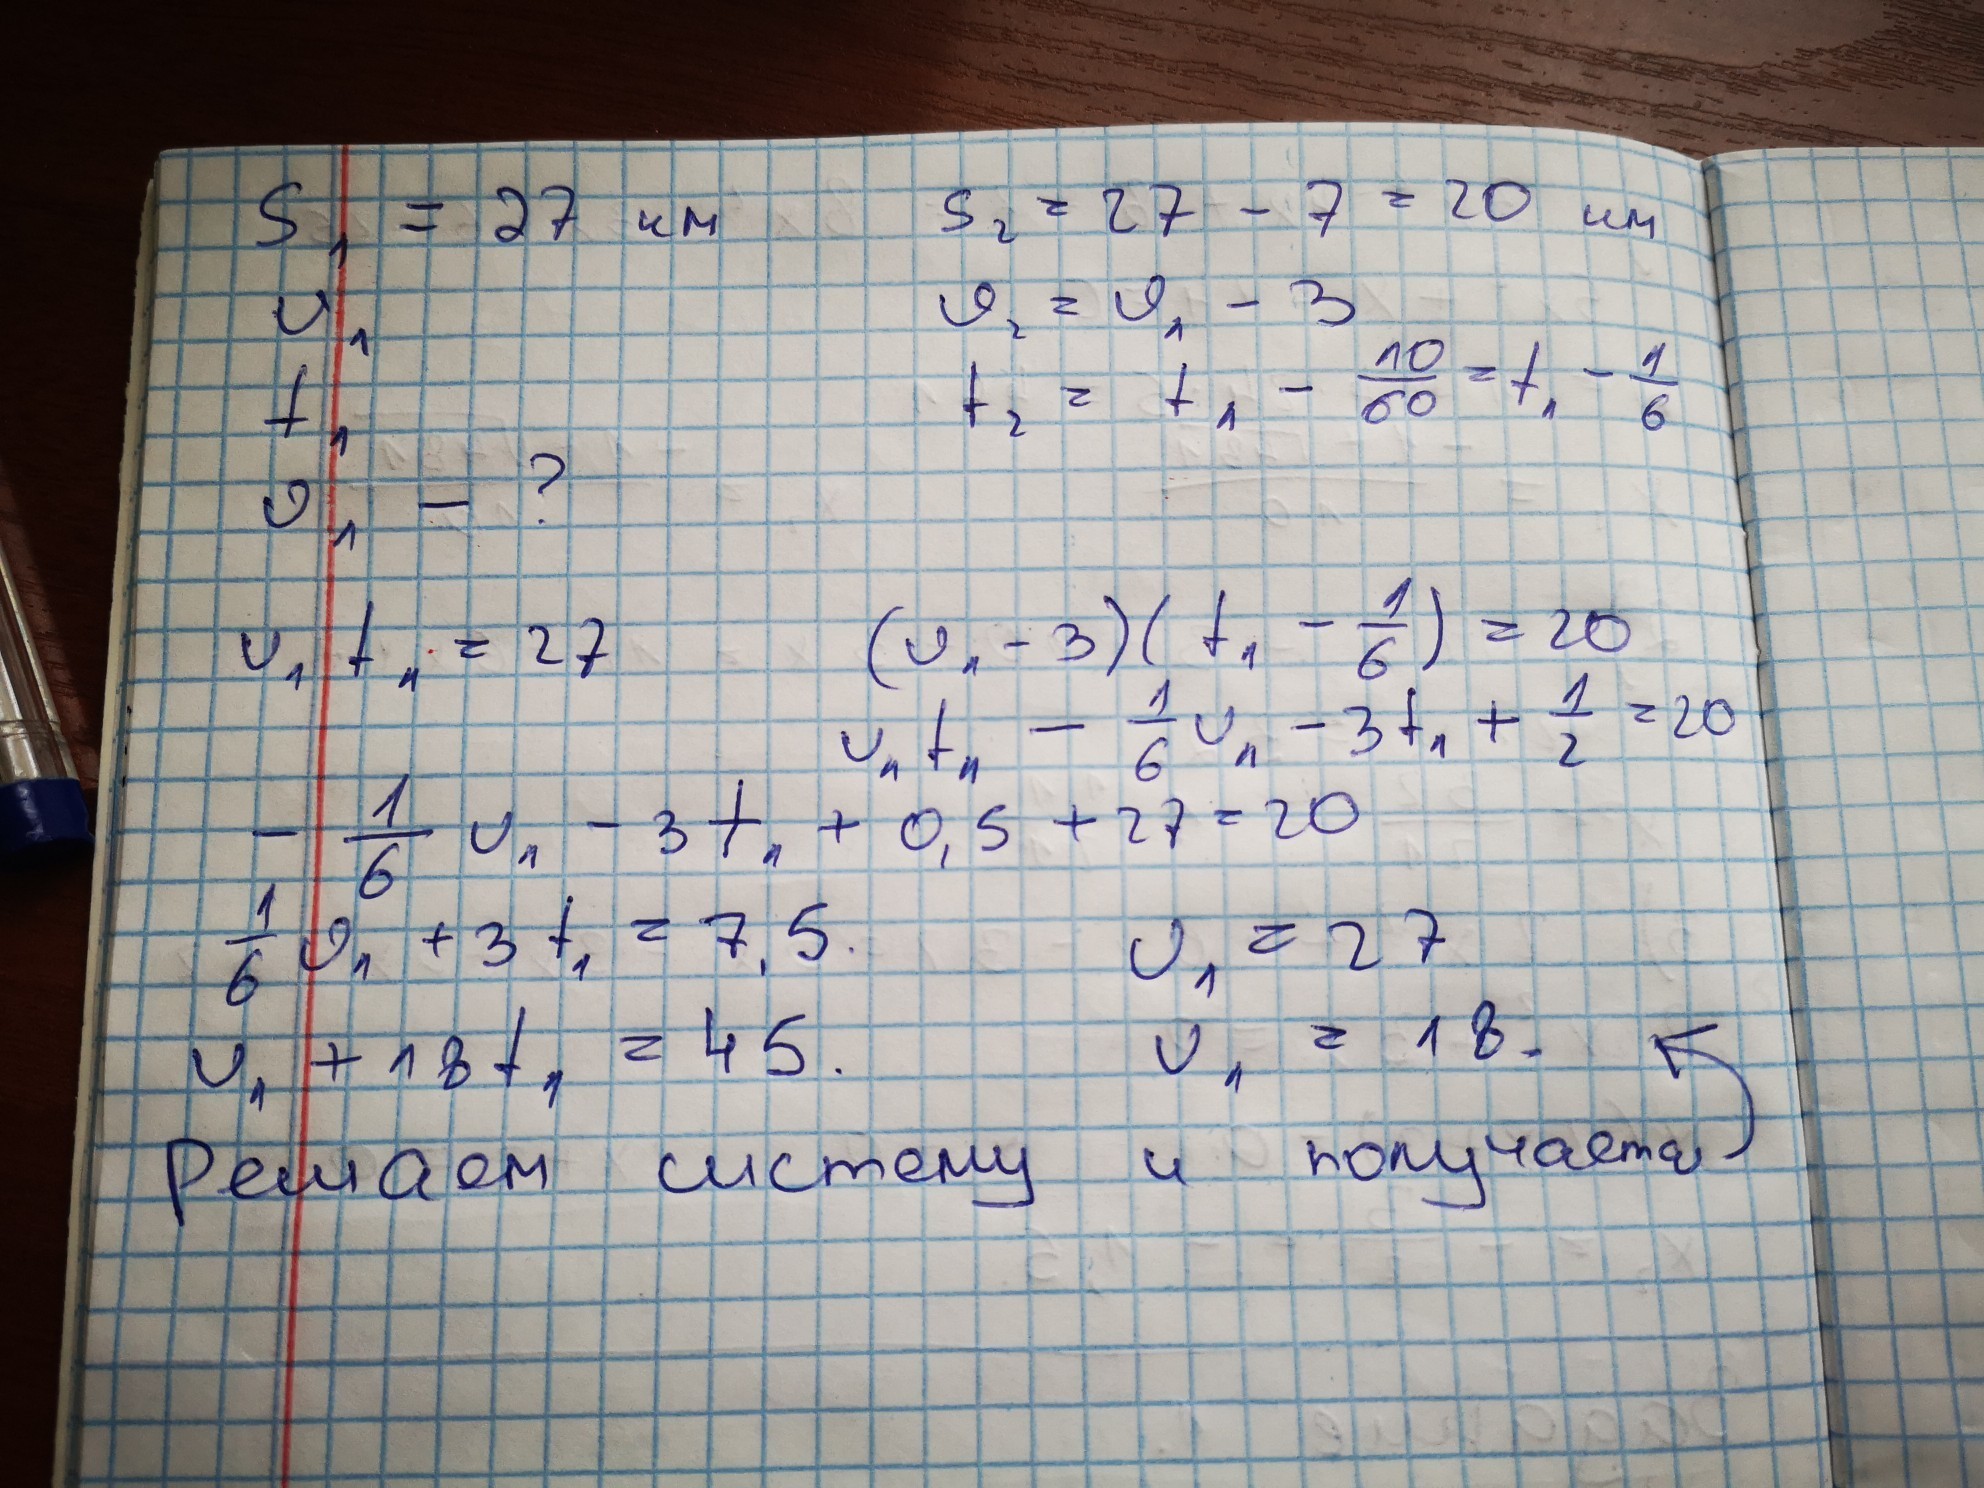 S₁ = 27 км S₂ = 27 - 7 = 20 км
v₁ v₂ = v₁ - 3
t₁ t₂ = t₁ - 10/60 = t₁ - 1/6
v₁ - ?
v₁ t₁ = 27 (v₁ - 3)(t₁ - 1/6) = 20
v₁ t₁ - 1/6 v₁ - 3t₁ + 1/2 = 20
- 1/6 v₁ - 3t₁ + 0,5 + 27 = 20
1/6 v₁ + 3t₁ = 7,5. v₁ = 27
v₁ + 18t₁ = 45. v₁ = 18.
Решаем систему и получаем